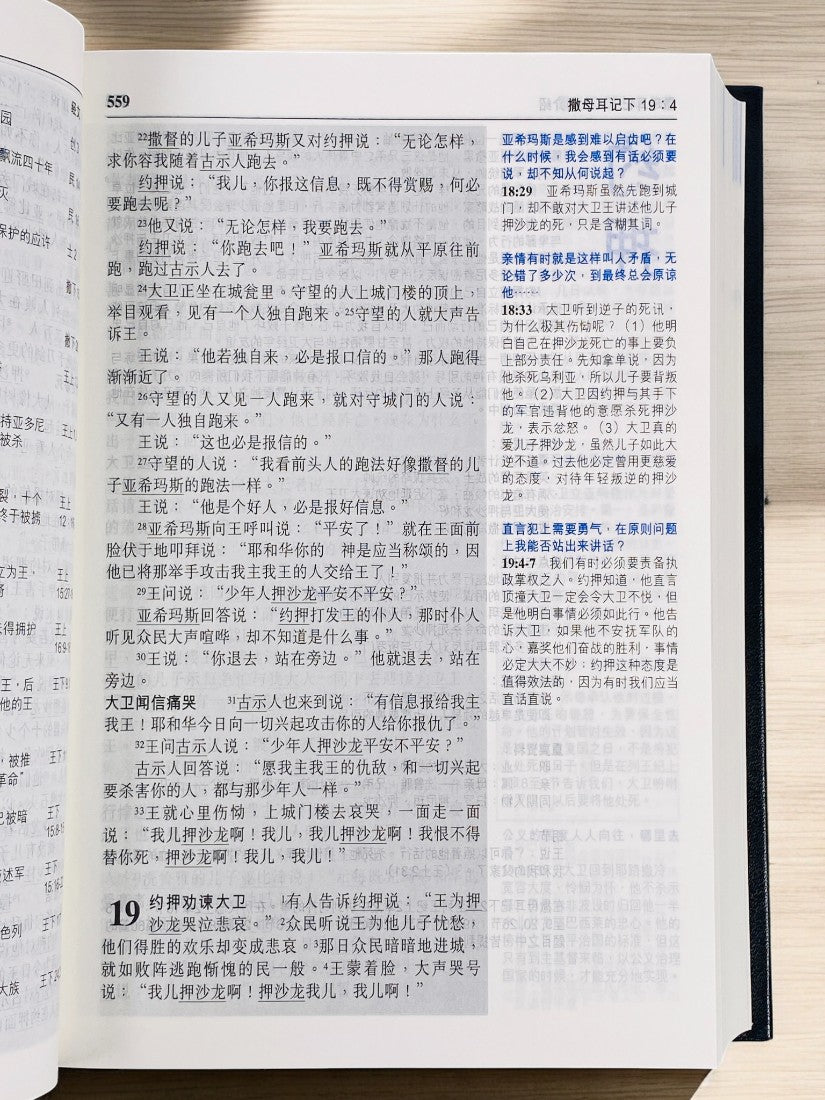 559
撒母耳记下 19：4
22撒督的儿子亚希玛斯又对约押说：“无论怎样，
求你容我随着古示人跑去。”
约押说：“我儿，你报这信息，既不得赏赐，何必
要跑去呢？”
23他又说：“无论怎样，我要跑去。”
约押说：“你跑去吧！”亚希玛斯就从平原往前
跑，跑过古示人去了。
24大卫正坐在城瓮里。守望的人上城门楼的顶上，
举目观看，见有一个人独自跑来。25守望的人就大声告
诉王。
王说：“他若独自来，必是报口信的。”那人跑得
渐渐近了。
26守望的人又见一人跑来，就对守城门的人说：
“又有一人独自跑来。”
王说：“这也必是报信的。”
27守望的人说：“我看前头人的跑法好像撒督的儿
子亚希玛斯的跑法一样。”
王说：“他是个好人，必是报好信息。”
28亚希玛斯向王呼叫说：“平安了！”就在王面前
脸伏于地叩拜说：“耶和华你的　神是应当称颂的，因
他已将那举手攻击我主我王的人交给王了！”
29王问说：“少年人押沙龙平安不平安？”
亚希玛斯回答说：“约押打发王的仆人，那时仆人
听见众民大声喧哗，却不知道是什么事。”
30王说：“你退去，站在旁边。”他就退去，站在
旁边。
大卫闻信痛哭　31古示人也来到说：“有信息报给我主
我王！耶和华今日向一切兴起攻击你的人给你报仇了。”
32王问古示人说：“少年人押沙龙平安不平安？”
古示人回答说：“愿我主我王的仇敌，和一切兴起
要杀害你的人，都与那少年人一样。”
33王就心里伤恸，上城门楼去哀哭，一面走一面
说：“我儿押沙龙啊！我儿，我儿押沙龙啊！我恨不得
替你死，押沙龙啊！我儿，我儿！”
19 约押劝谏大卫　1有人告诉约押说：“王为押
沙龙哭泣悲哀。”2众民听说王为他儿子忧愁，
他们得胜的欢乐却变成悲哀。3那日众民暗暗地进城，
就如败阵逃跑惭愧的民一般。4王蒙着脸，大声哭号
说：“我儿押沙龙啊！押沙龙我儿，我儿啊！”
亚希玛斯是感到难以启齿吧？在
什么时候，我会感到有话必须要
说，却不知从何说起？
18:29　亚希玛斯虽然先跑到城
门，却不敢对大卫王讲述他儿子
押沙龙的死，只是含糊其词。
亲情有时就是这样叫人矛盾，无
论错了多少次，到最终总会原谅
他……
18:33　大卫听到逆子的死讯，
为什么极其伤恸呢？（1）他明
白自己在押沙龙死亡的事上要负
上部分责任。先知拿单说，因为
他杀死乌利亚，所以儿子要背叛
他。（2）大卫因约押与其手下
的军官违背他的意愿杀死押沙
龙，表示忿怒。（3）大卫真的
爱儿子押沙龙，虽然儿子如此大
逆不道。过去他必定曾用更慈爱
的态度，对待年轻叛逆的押沙
龙。
直言犯上需要勇气，在原则问题
上我能否站出来讲话？
19:4-7　我们有时必须要责备执
政掌权之人。约押知道，他直言
顶撞大卫一定会令大卫不悦，但
是他明白事情必须如此行。他告
诉大卫，如果他不安抚军队的
心，嘉奖他们奋战的胜利，事情
必定大大不妙；约押这种态度是
值得效法的，因为有时我们应当
直话直说。